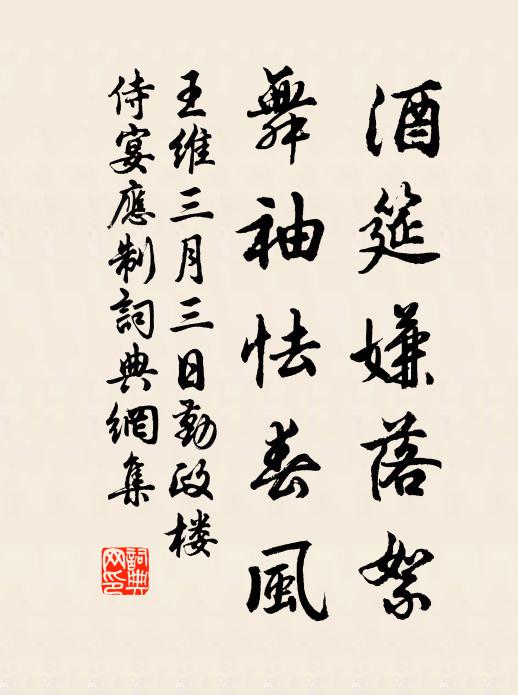 酒筵嫌落絮
舞袖怯春風
王維三月三日勤政楼
侍宴應制詞典網集
詞典
网印